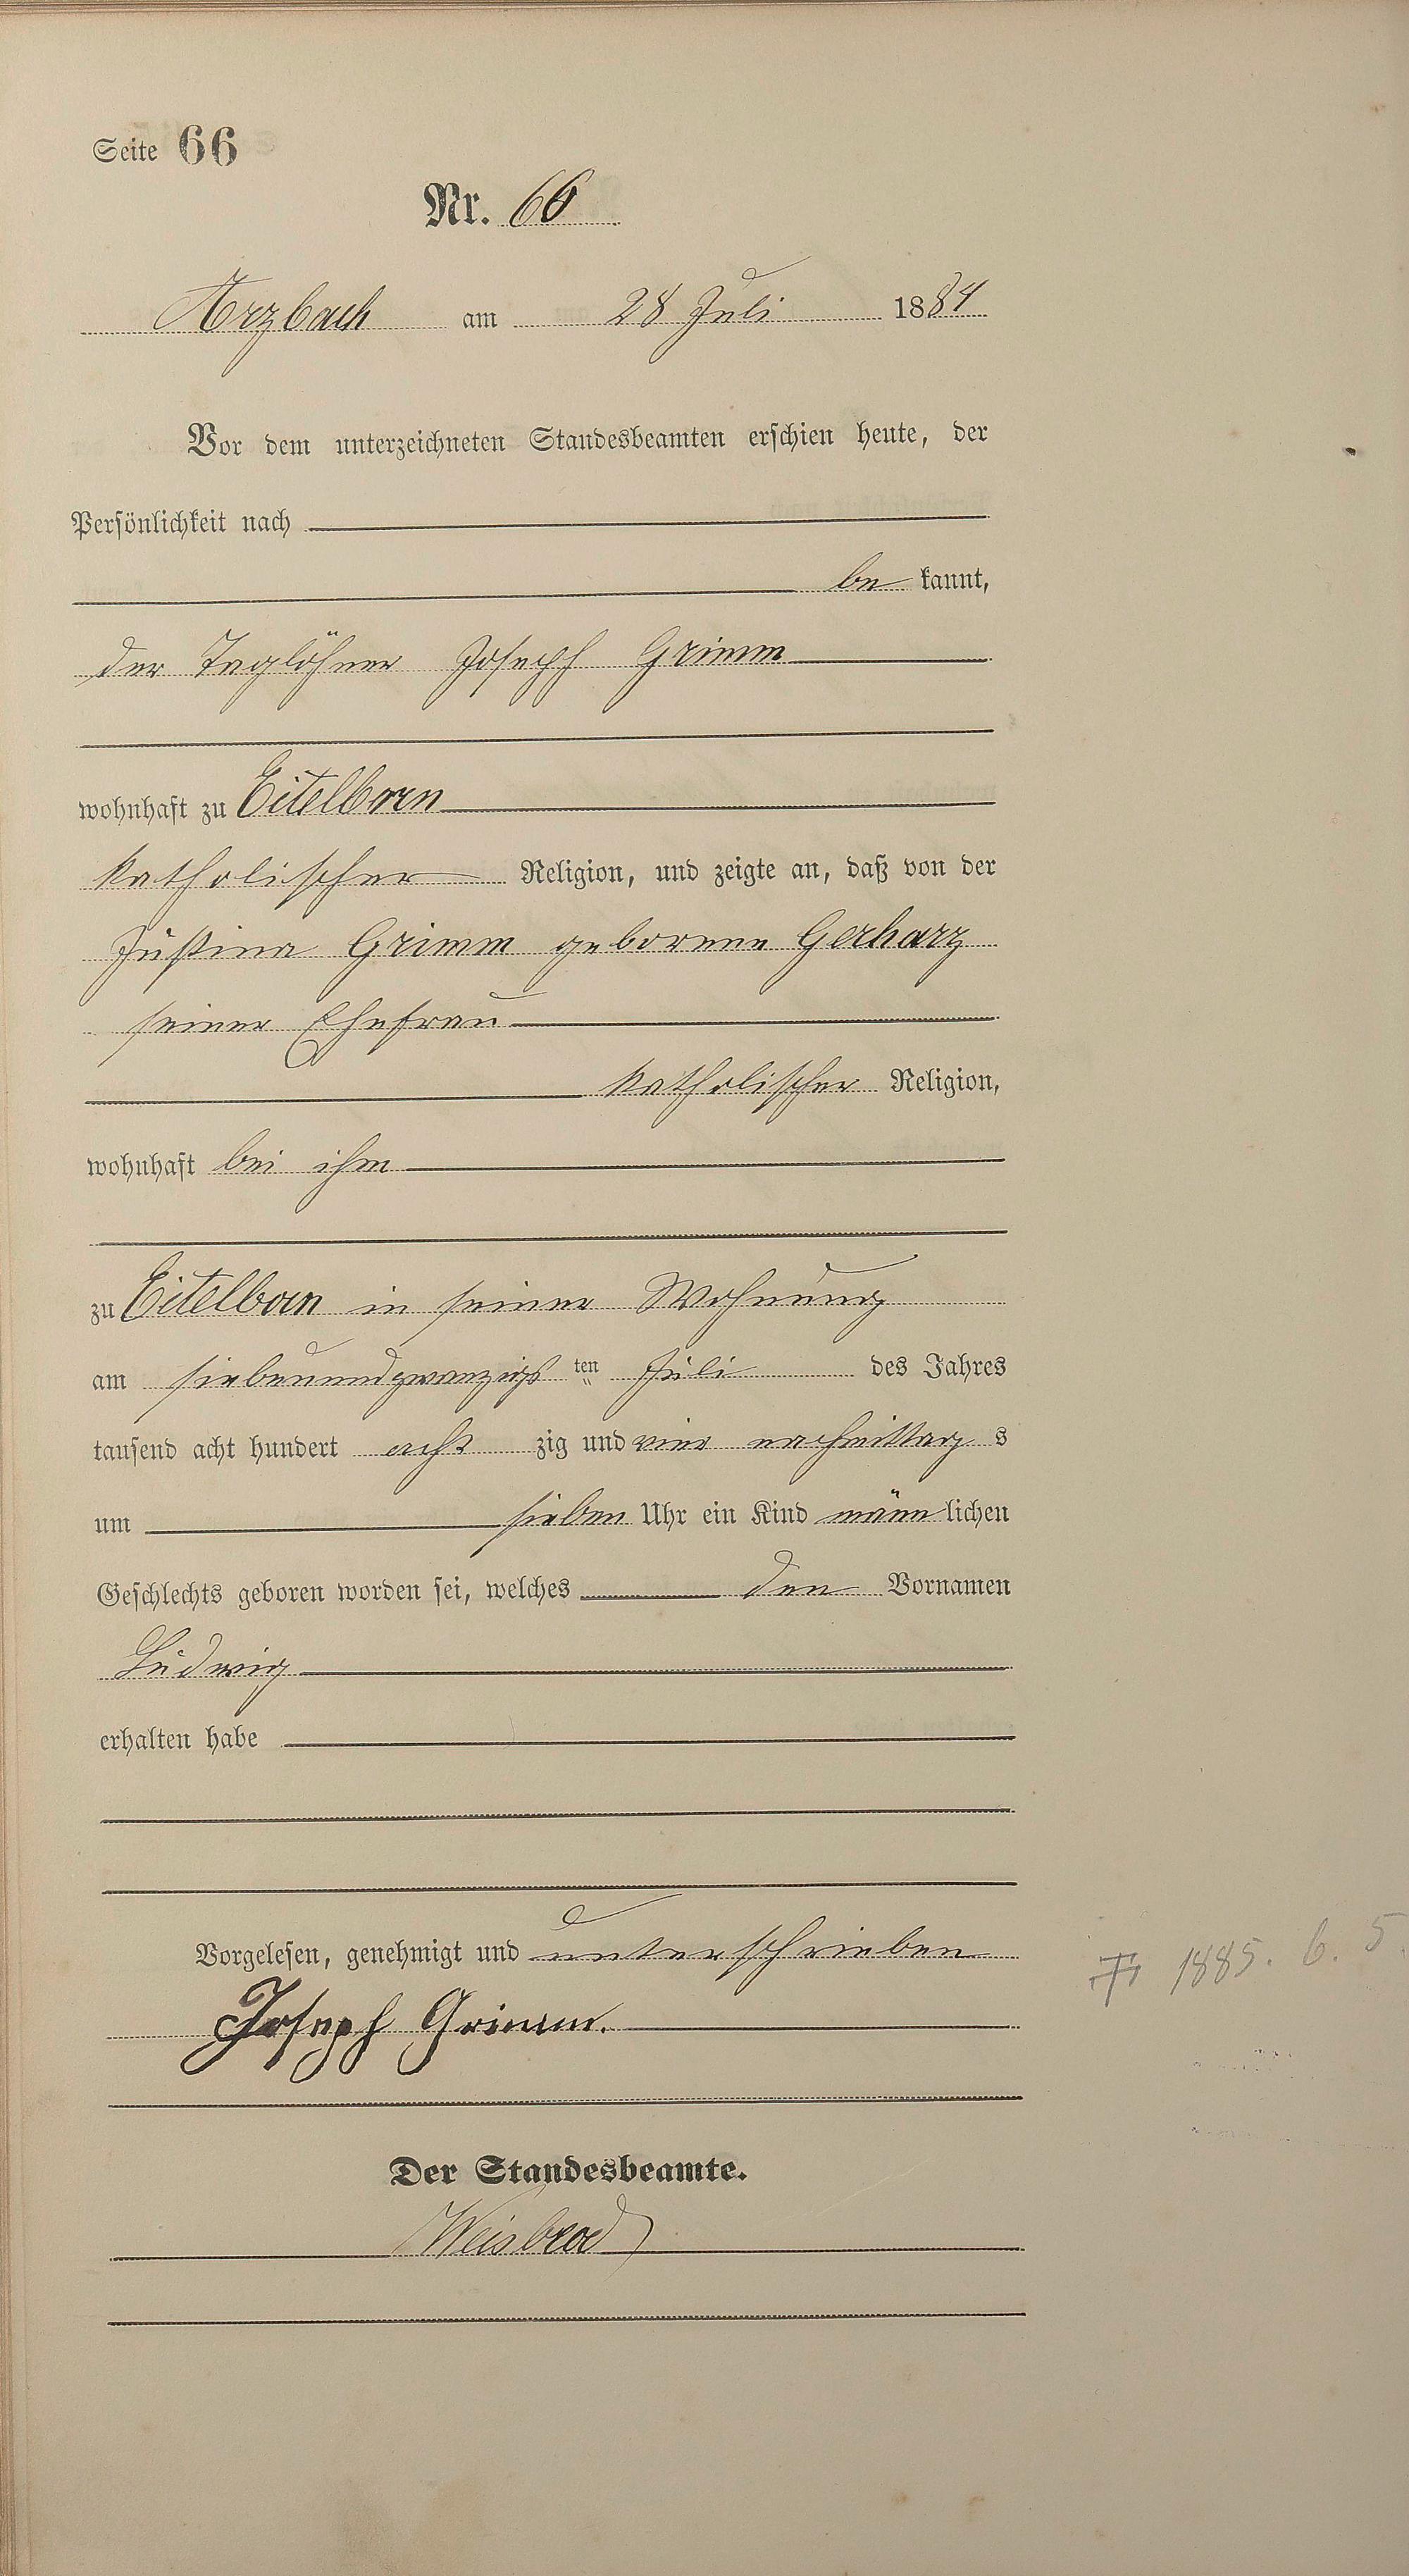 Seite 66
Nr. 66
Arzbach am 28 Juli 1884
Vor dem unterzeichneten Standesbeamten erschien heute, der
Persönlichkeit nach
be kannt,
der Taglöhner Joseph Grimm
wohnhaft zu Eitelborn
katholischer Religion, und zeigte an, daß von der
Justina Grimm geborene Gerharz
seiner Ehefrau
katholischer Religion,
wohnhaft bei ihm
zu Eitelborn in seiner Wohnung
am siebenundzwanzigs ten Juli des Jahres
tausend acht hundert acht zig und vier nachmittag s
um sieben Uhr ein Kind männ lichen
Geschlechts geboren worden sei, welches den Vornamen
Ludwig
erhalten habe
Vorgelesen, genehmigt und unterschrieben
Joseph Grimm.
1885. 6. 5
Der Standesbeamte.
Weisbrod